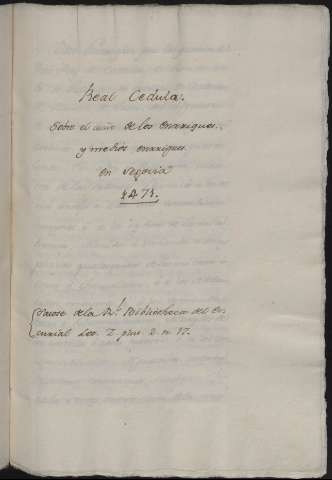 Real Cedula.
Sobre el cuño de los enrriques
y medios enrriques
en Segovia
1471.
Sacose de la Rl. Bibliotheca del Es
curial Let. Z. plut. 2. n. 17.